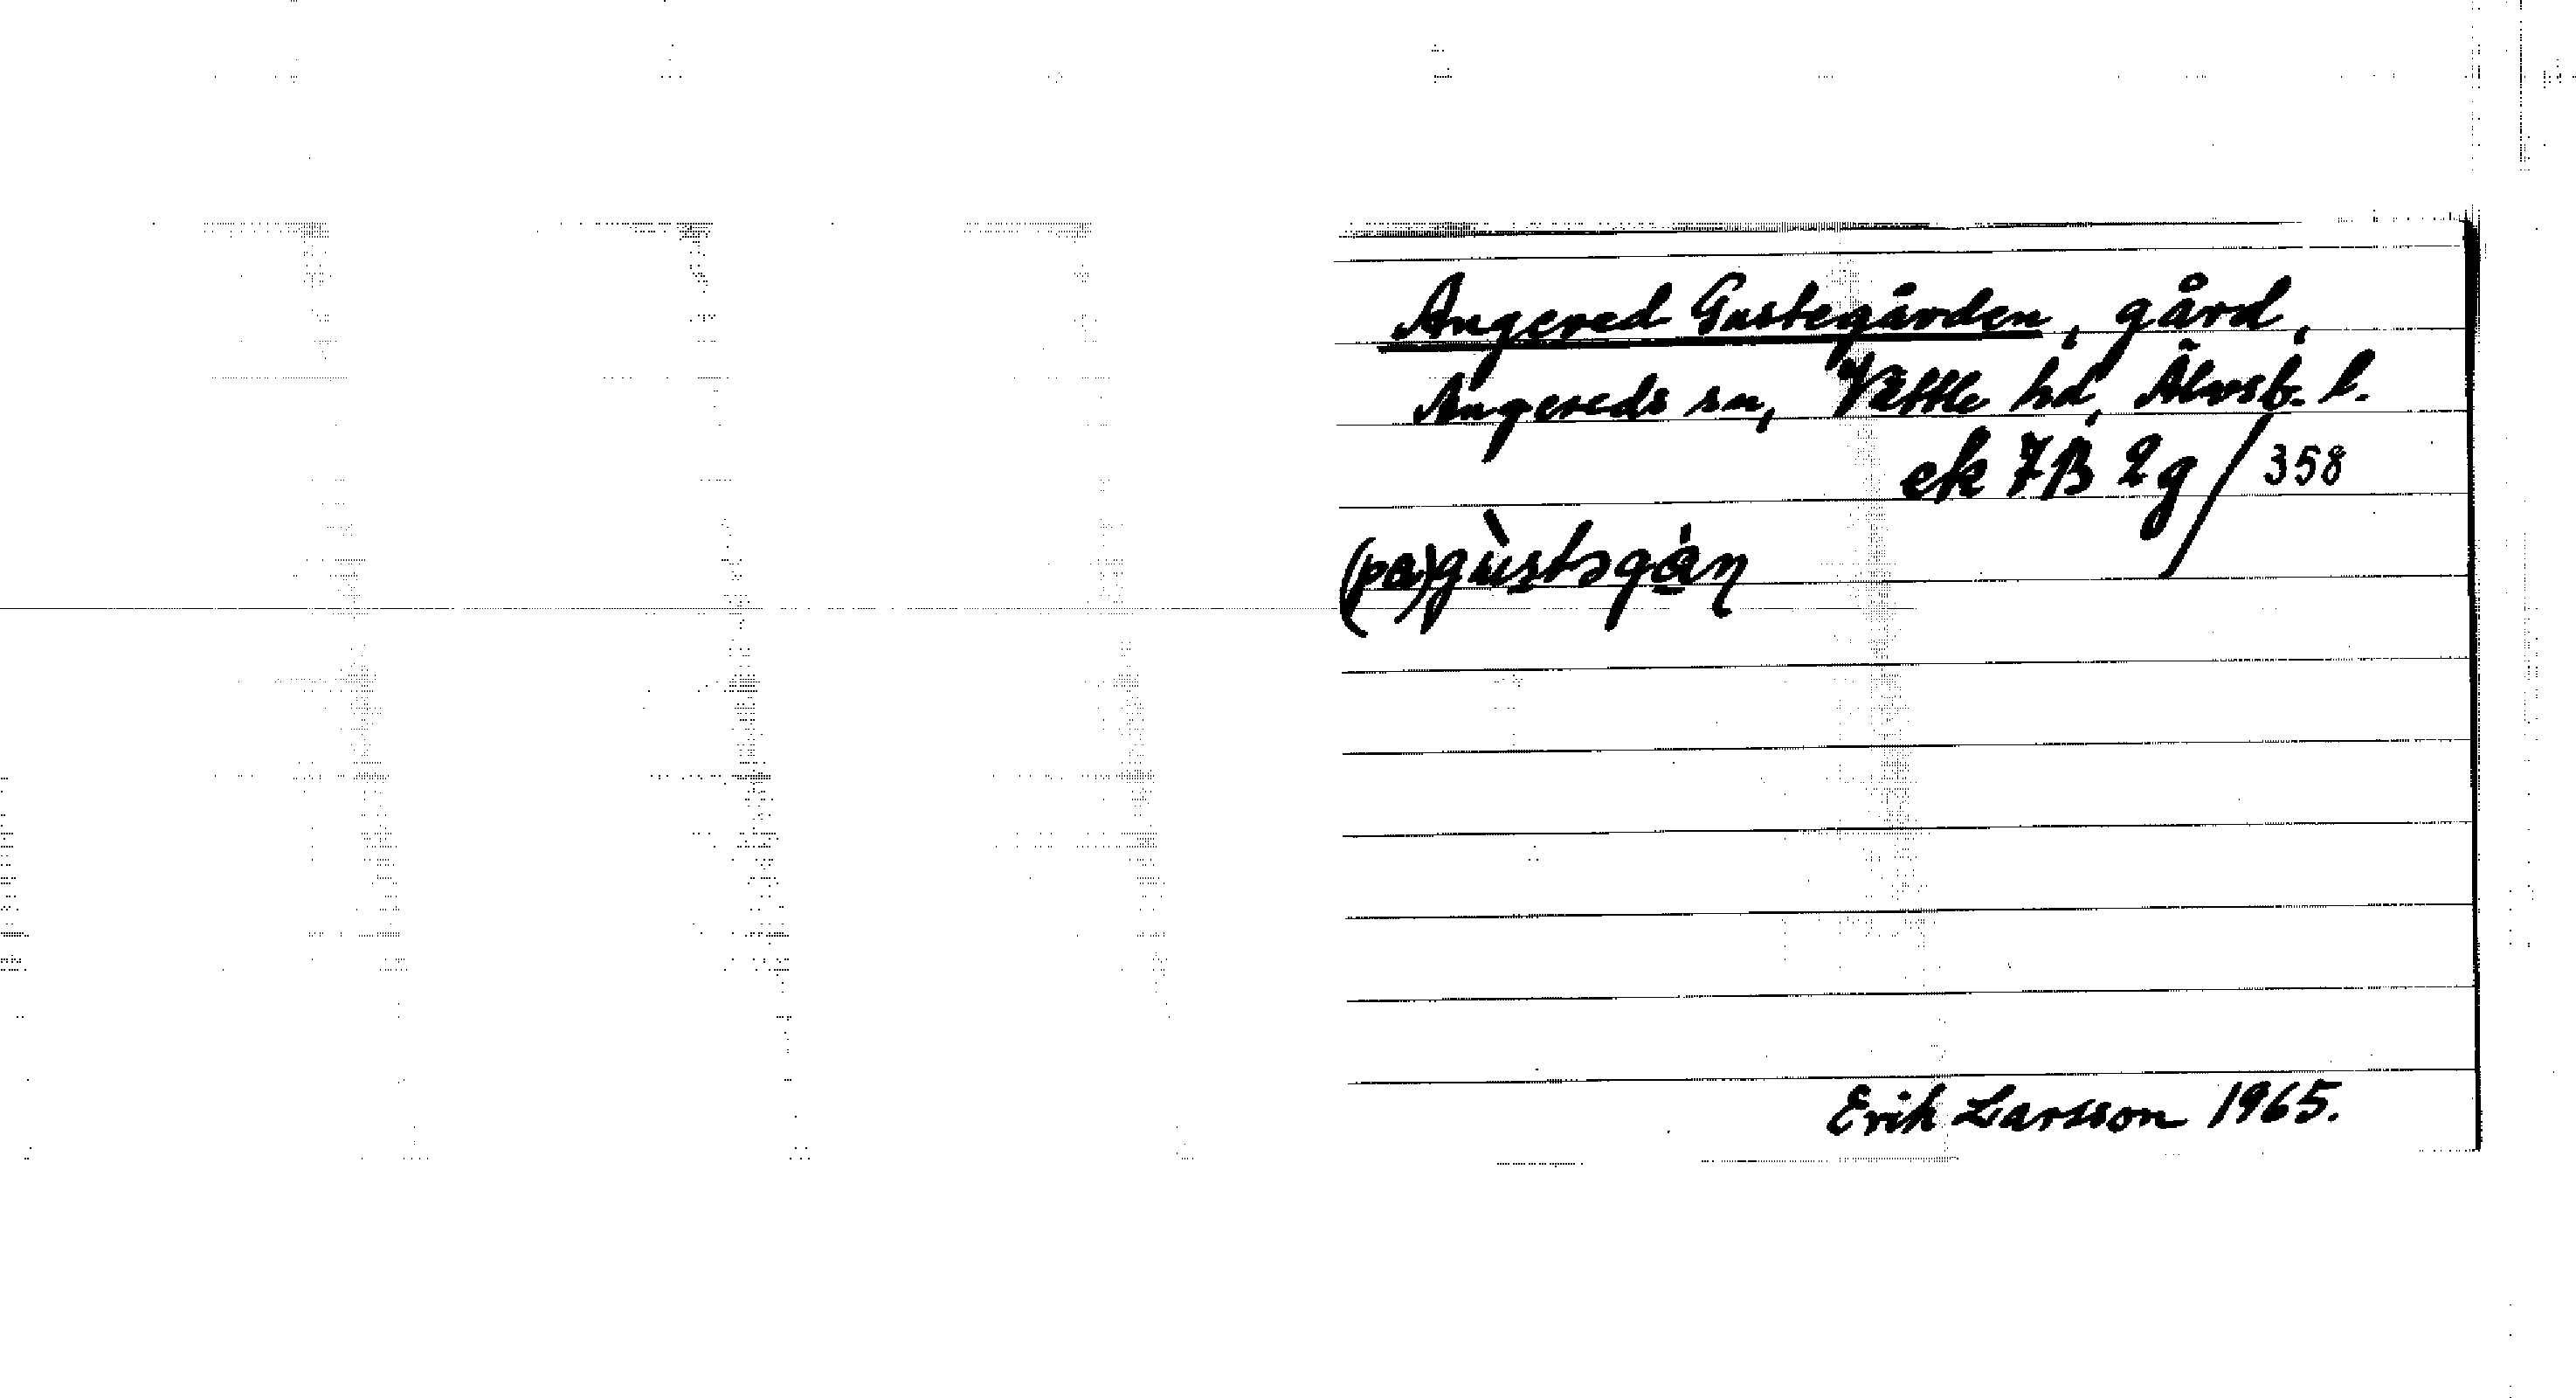 Angered Gustegården, gård,
Angereds sn, Vättle hd, Älvsb. l.
ek 7B 2g / 358
Erik Larsson 1965.